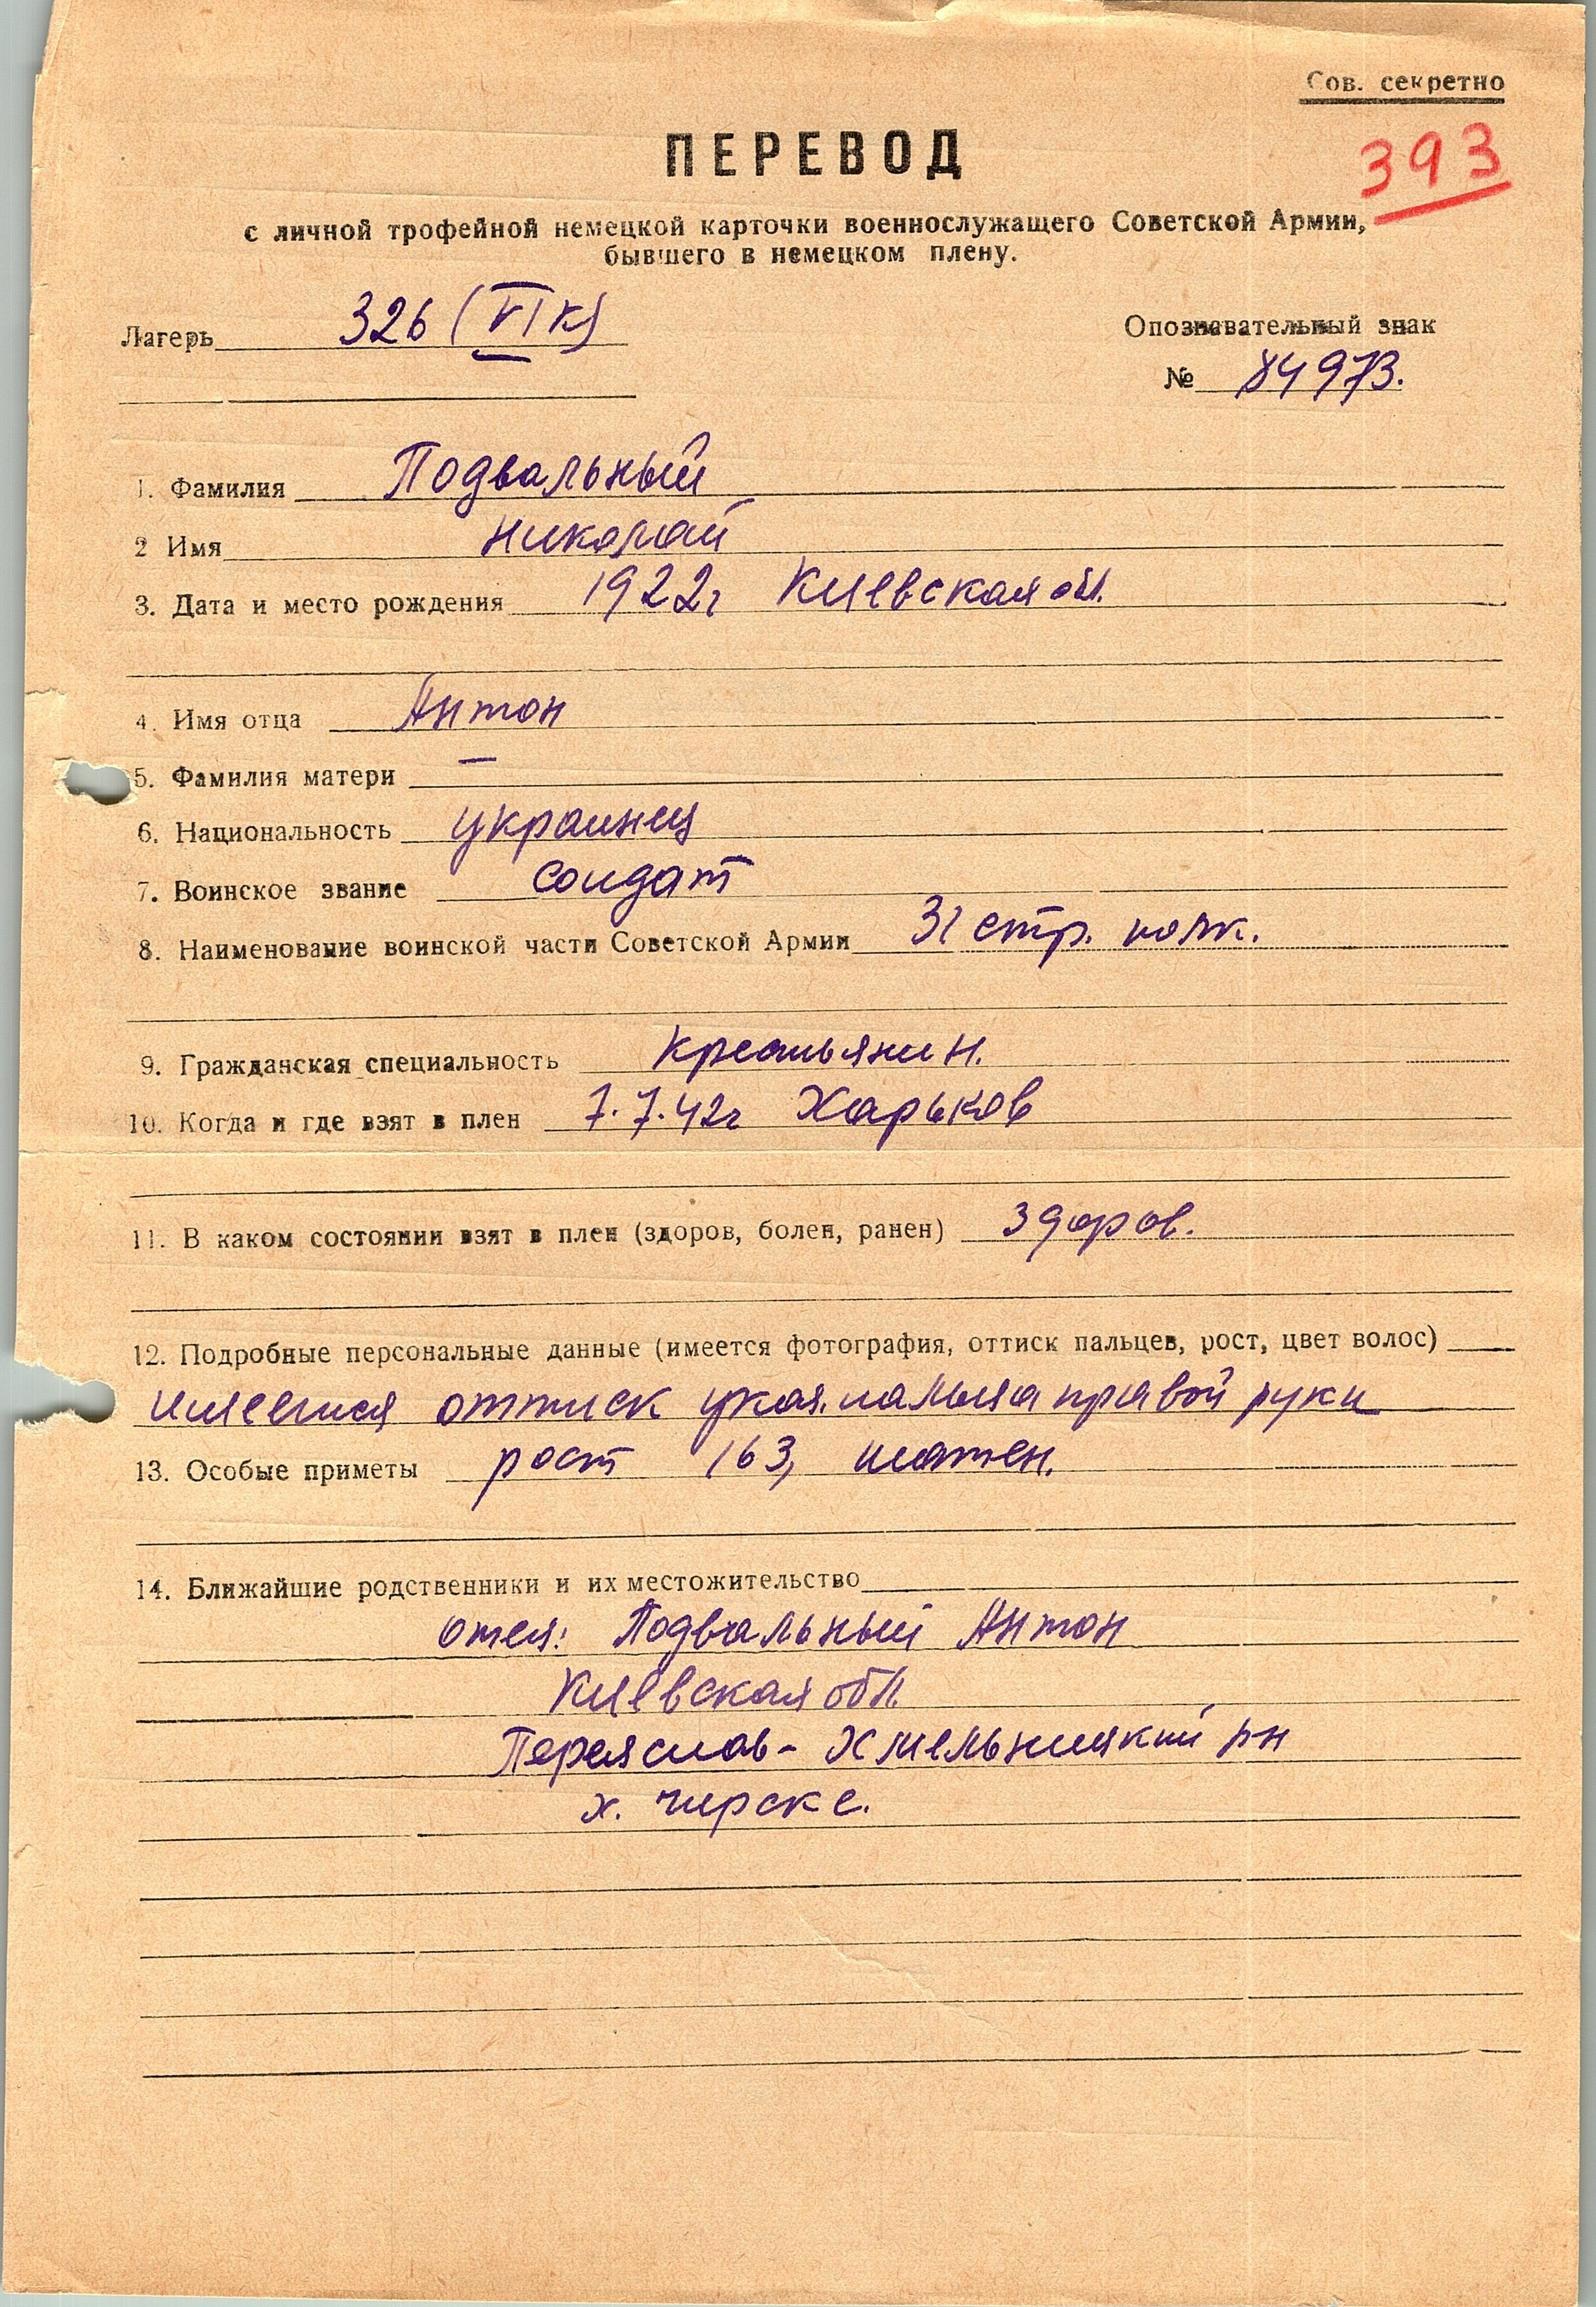 Сов. секретно
393
ПЕРЕВОД
с личной трофейной немецкой карточки военнослужащего Советской Армии,
бывшего в немецком плену.
Лагерь 326 (VI К)
Опознавательный знак
№ 84973.
1. Фамилия Подвальный
2 Имя Николай
3. Дата и место рождения 1922г Киевская обл.
4. Имя отца Антон
5. Фамилия матери —
6. Национальность украинец
7. Воинское звание солдат
8. Наименование воинской части Советской Армии 31 стр. полк.
9. Гражданская специальность крестьянин.
10. Когда и где взят в плен 7.7.42г Харьков
11. В каком состоянии взят в плен (здоров, болен, ранен) здоров.
12. Подробные персональные данные (имеется фотография, оттиск пальцев, рост, цвет волос)
имеется оттиск указ. пальца правой руки
13. Особые приметы рост 163, шатен.
14. Ближайшие родственники и их местожительство
отец: Подвальный Антон
Киевская обл.
Переяслав-Хмельницкий р-н
х. Чирске.